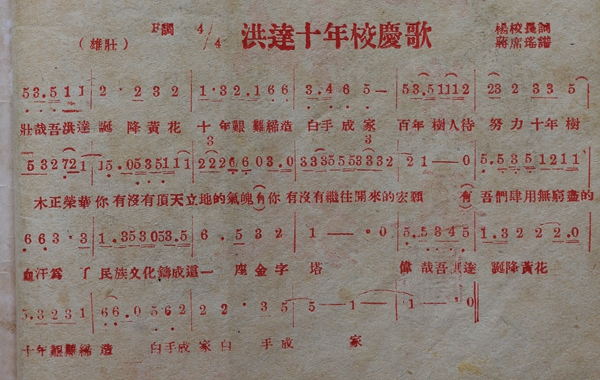 F調 4/4 洪達十年校慶歌 楊校長詞
（雄壯） 蔣席珤譜
53.511 2·232 1·32.166 3.465— 53.51112 232335
壯哉吾洪達 誕降黃花 十年艱難締造 白手成家 百年樹人待 努力十年樹
532721 15.0535111 2226603.0 3335553332 21—0 5.5351211
木正榮華你有沒有頂天立地的氣魄（有）你有沒有繼往開來的宏願 （有）吾們肆用無窮盡的
663·3 1.353053.5 6.532 1—·0 5.5345 1.3222.0
血汗為了民族文化鑄成這一座金字塔 偉哉吾洪達 誕降黃花
5.3231 66·0.562 22·35 5—1— 1—·0
十年艱難締造 白手成家白手成家